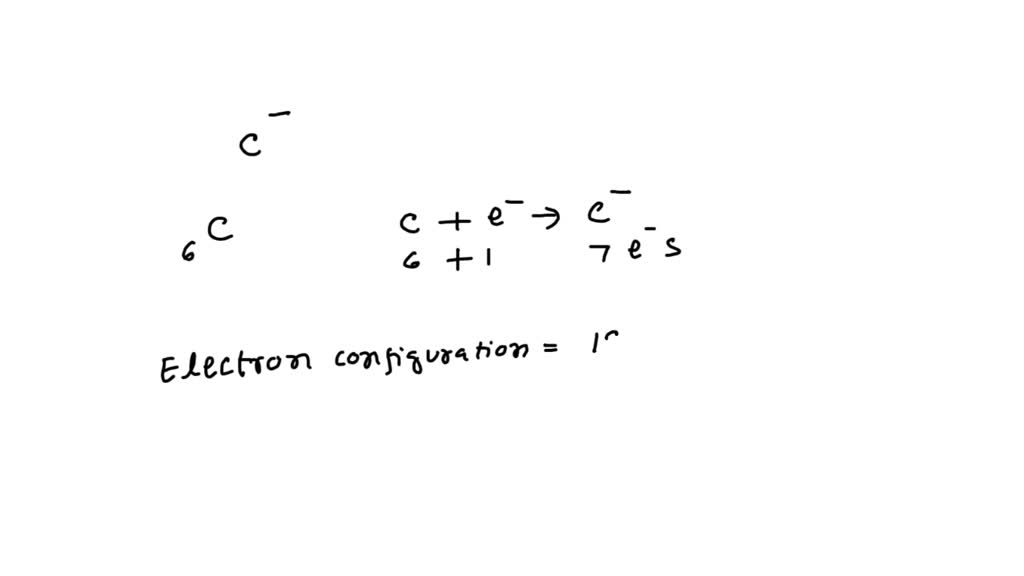 C⁻
₆C
C + e⁻ → C⁻
6 + 1 7 e⁻ s
Electron configuration = 1